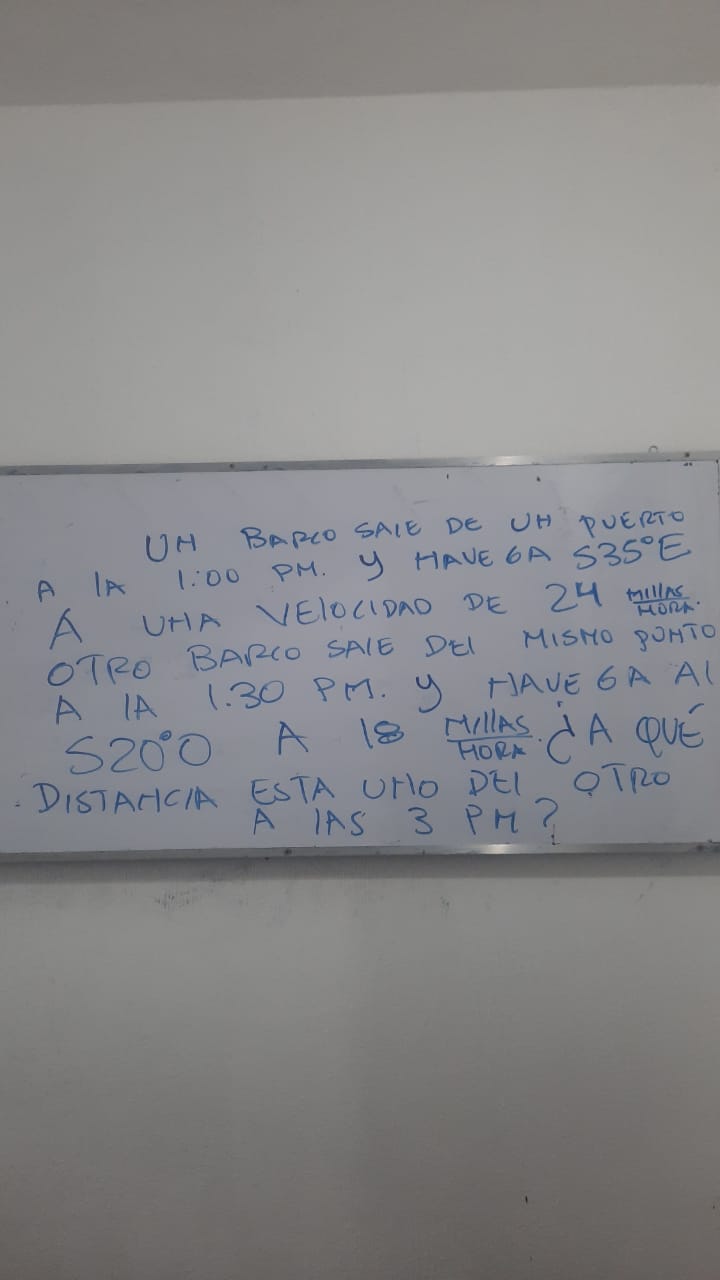 UN BARCO SALE DE UN PUERTO
A LA 1:00 PM. Y NAVEGA S35°E
A UNA VELOCIDAD DE 24 MILLAS/HORA.
OTRO BARCO SALE DEL MISMO PUNTO
A LA 1:30 PM. Y NAVEGA AL
S20°O A 18 MILLAS/HORA. ¿A QUÉ
DISTANCIA ESTA UNO DEL OTRO
A LAS 3 PM?